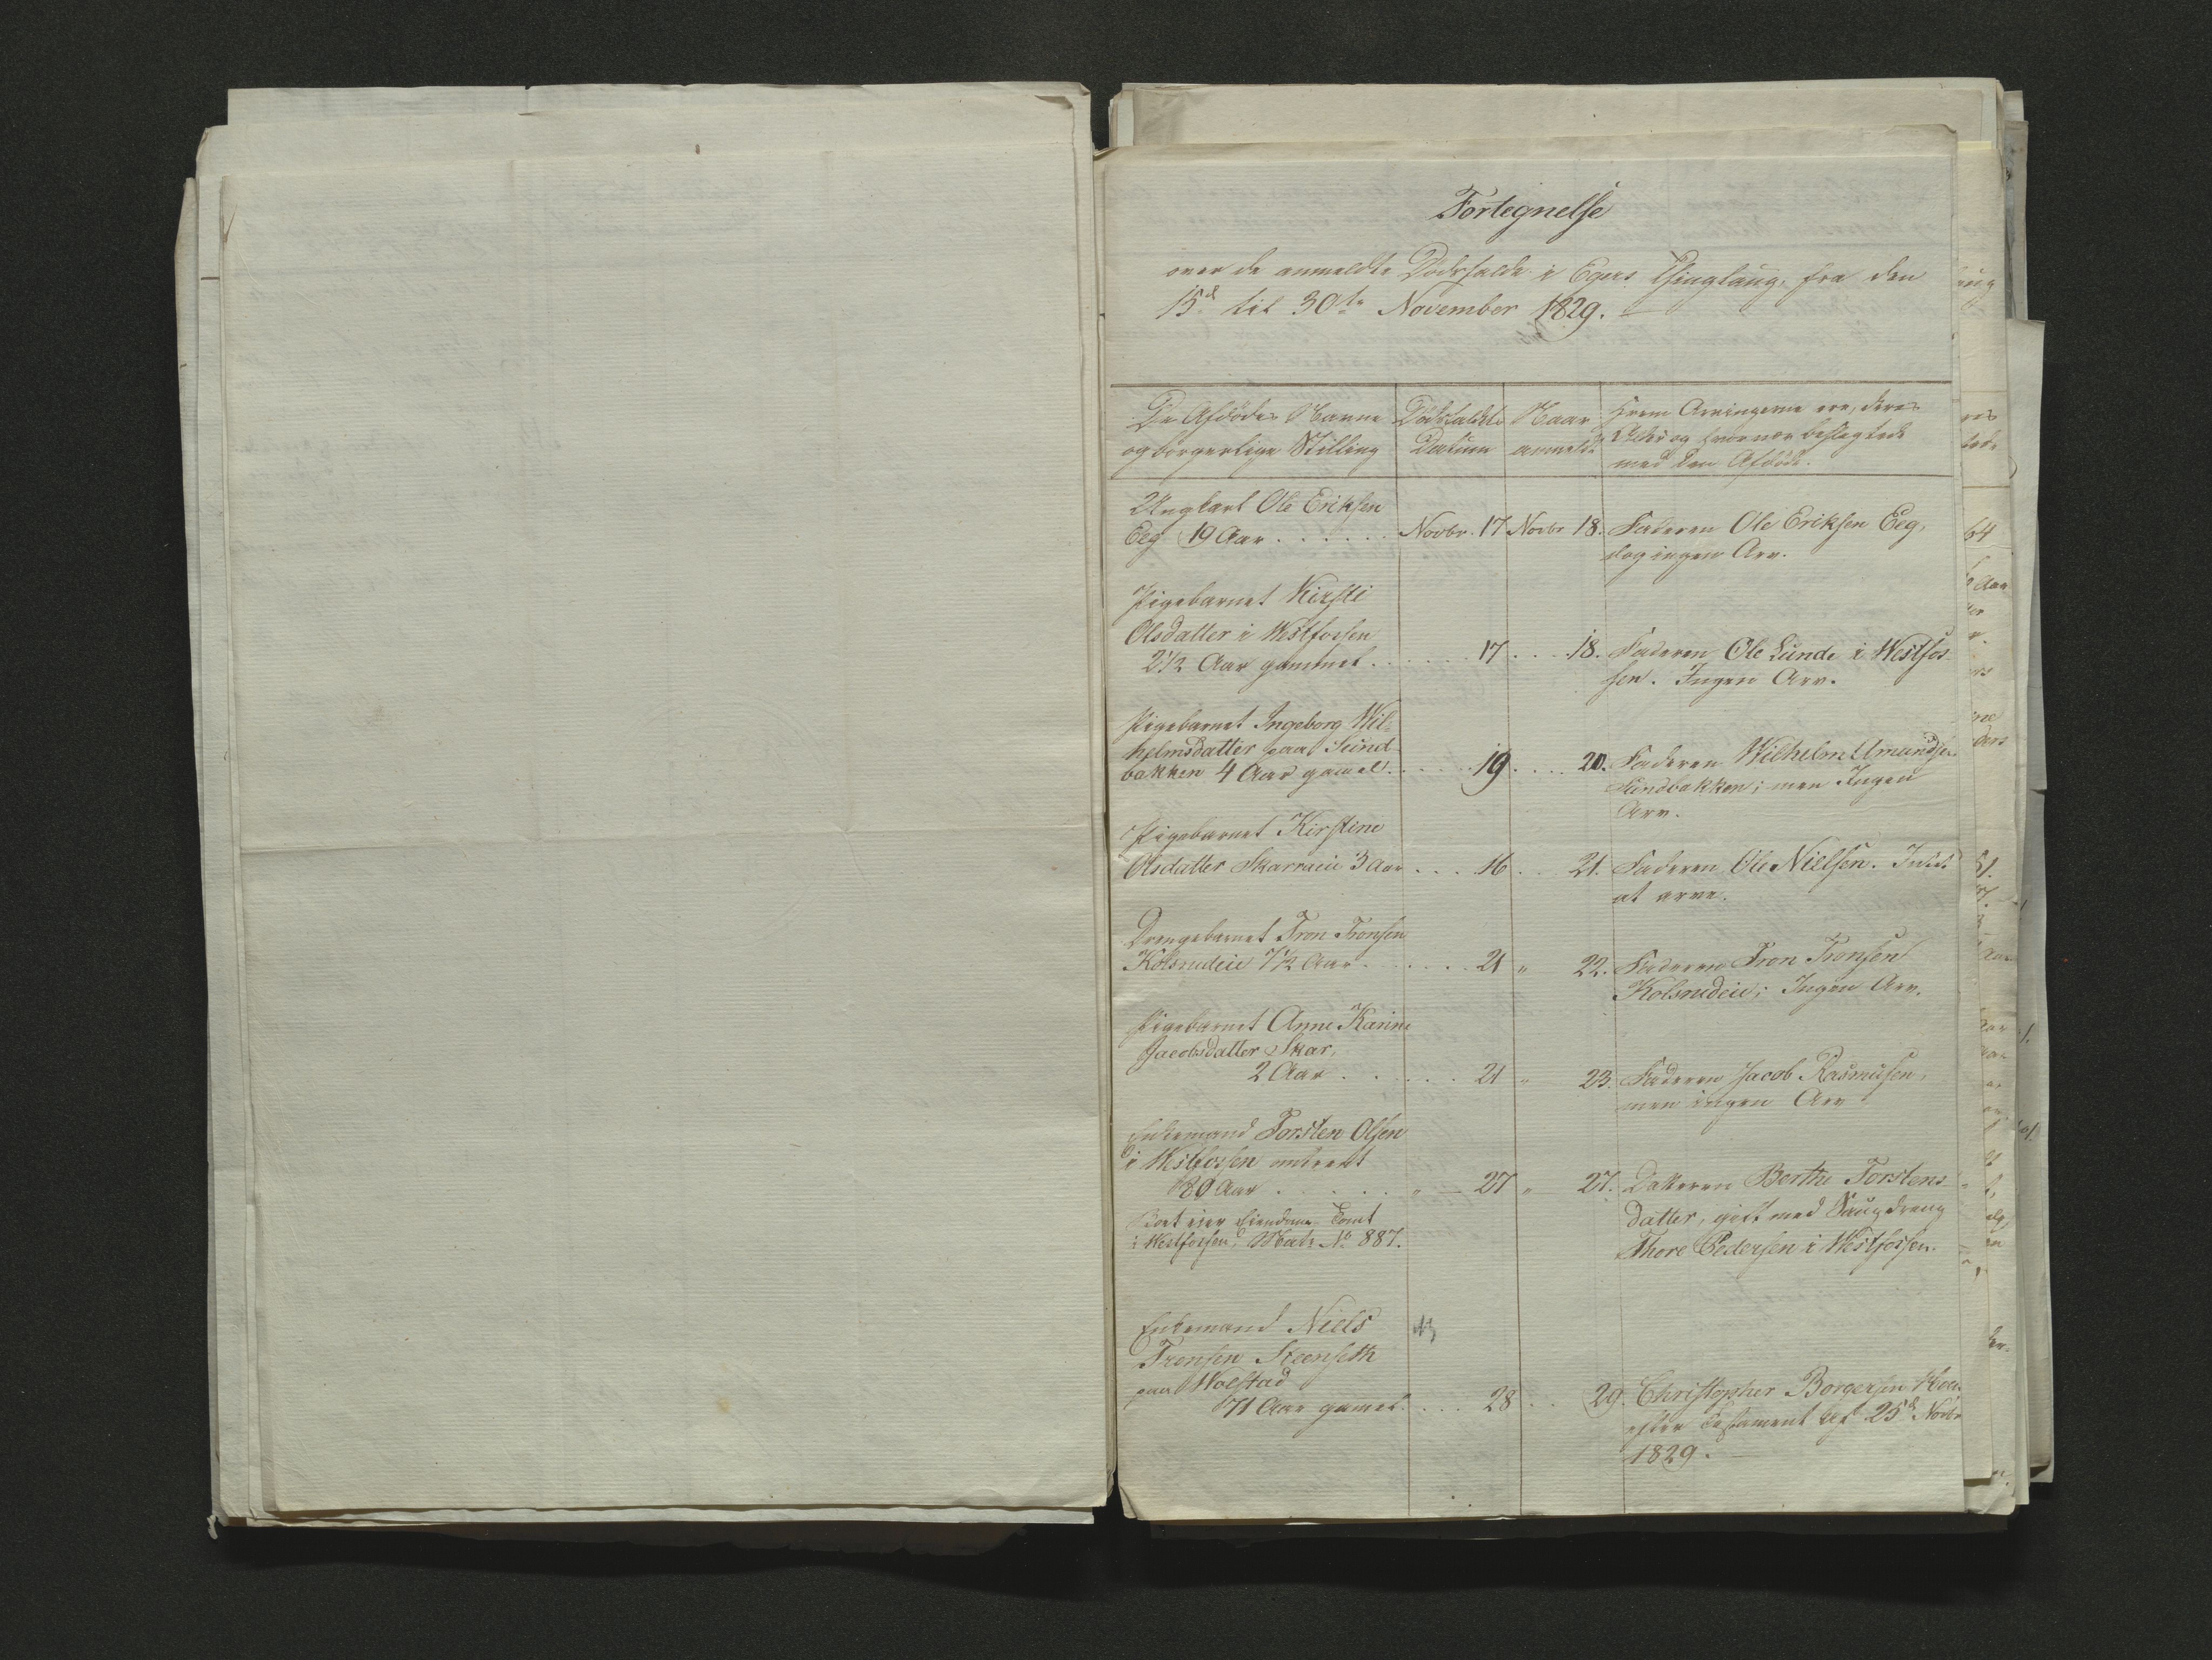 Fortegnelse
over de anmeldte Dödsfalde i Egers Thinglaug, fra den
15d til 30te November 1829.
De Afdödes Navne
og borgerlige Stilling
Dödsfaldets
Datum
Naar
anmeldt
Hvem Arvingerne ere, deres
Alder og hvor nær beslægtede
med den Afdöde.
Ungkarl Ole Eriksen
Eeg 19 Aar . . . . . . Novbr. 17 Novbr 18. Faderen Ole Eriksen Eeg,
dog ingen Arv.
Pigebarnet Kirsti
Olsdatter i Westfossen
2 1/2 Aar gammel . . . . . 17 . . . 18. Faderen Ole Lunde i Westfos-
sen. Ingen Arv.
Pigebarnet Ingeborg Wil-
helmsdatter paa Sund-
bakken 4 Aar gamel . . . . . 19 . . . 20. Faderen Wilhelm Amundsen
Sundbakken; men Ingen
Arv.
Pigebarnet Kirstine
Olsdatter Skarraeie 3 Aar . . . 16 . . 21. Faderen Ole Nielsen. Intet
at arve.
Drengebarnet Tron Tronsen
Kolsrudeie 7 1/2 Aar . . . . . 21 " 22. Faderen Tron Tronsen
Kolsrudeie; Ingen Arv.
Pigebarnet Anne Karine
Jacobsdatter Skar,
2 Aar . . . . . 21 " 23. Faderen Jacob Rasmusen,
men ingen Arv
Enkemand Torsten Olsen
i Westfossen omtrent
80 Aar . . . . . " — 27 " 27. Datteren Berthe Torstens-
datter, gift med Saugdreng
Thore Pedersen i Westfossen.
Boet eier Eiendom Tomt
i Westfossen, Matr No 887.
Enkemand Niels
Tronsen Steenseth
paa Wolstad
71 Aar gamel . . . 28 . . 29. Christopher Borgersen
efter Testament af 25d Novbr
1829.